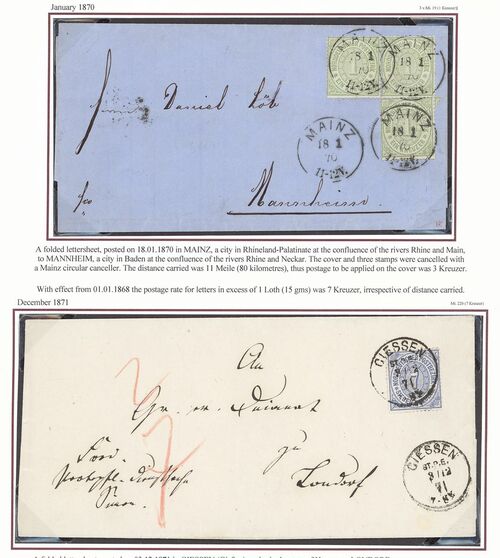 January 1870
3 x Mi. 19 (1 Kreuzer)
MAINZ
18 1
70
11-12V.
MAINZ
18 1
70
11-12V.
Daniel Löb
MAINZ
18 1
70
11-12V.
MAINZ
18 1
70
11-12V.
fco
Mannheim
A folded lettersheet, posted on 18.01.1870 in MAINZ, a city in Rhineland-Palatinate at the confluence of the rivers Rhine and Main,
to MANNHEIM, a city in Baden at the confluence of the rivers Rhine and Neckar. The cover and three stamps were cancelled with
a Mainz circular canceller. The distance carried was 11 Meile (80 kilometres), thus postage to be applied on the cover was 3 Kreuzer.
With effect from 01.01.1868 the postage rate for letters in excess of 1 Loth (15 gms) was 7 Kreuzer, irrespective of distance carried.
December 1871
(7 Kreuzer)
GIESSEN
71
7
An
7
zu
Londorf
GIESSEN
ST.P.E.
71